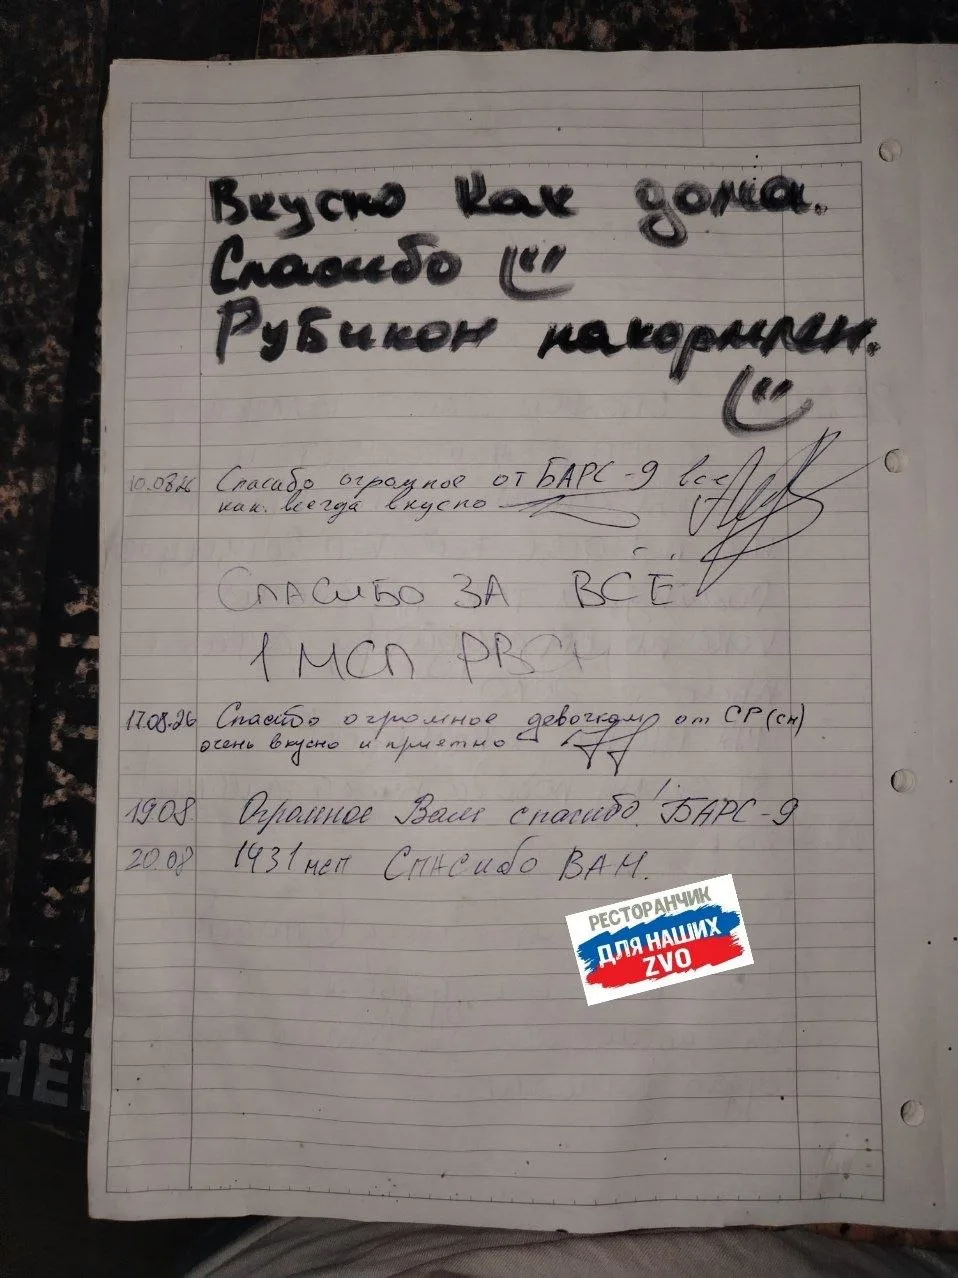 Вкусно как дома.
Спасибо
Рубикон накормлен.
10.08.26 Спасибо огромное от БАРС-9 все
как всегда вкусно
СПАСИБО ЗА ВСЁ
1 МСП РВСН
17.08.26 Спасибо огромное девочкам от СР(сн)
очень вкусно и приятно
19.08 Огромное Вам спасибо! БАРС-9
20.08 1431 мсп СПАСИБО ВАМ.
РЕСТОРАНЧИК
ДЛЯ НАШИХ
ZVO